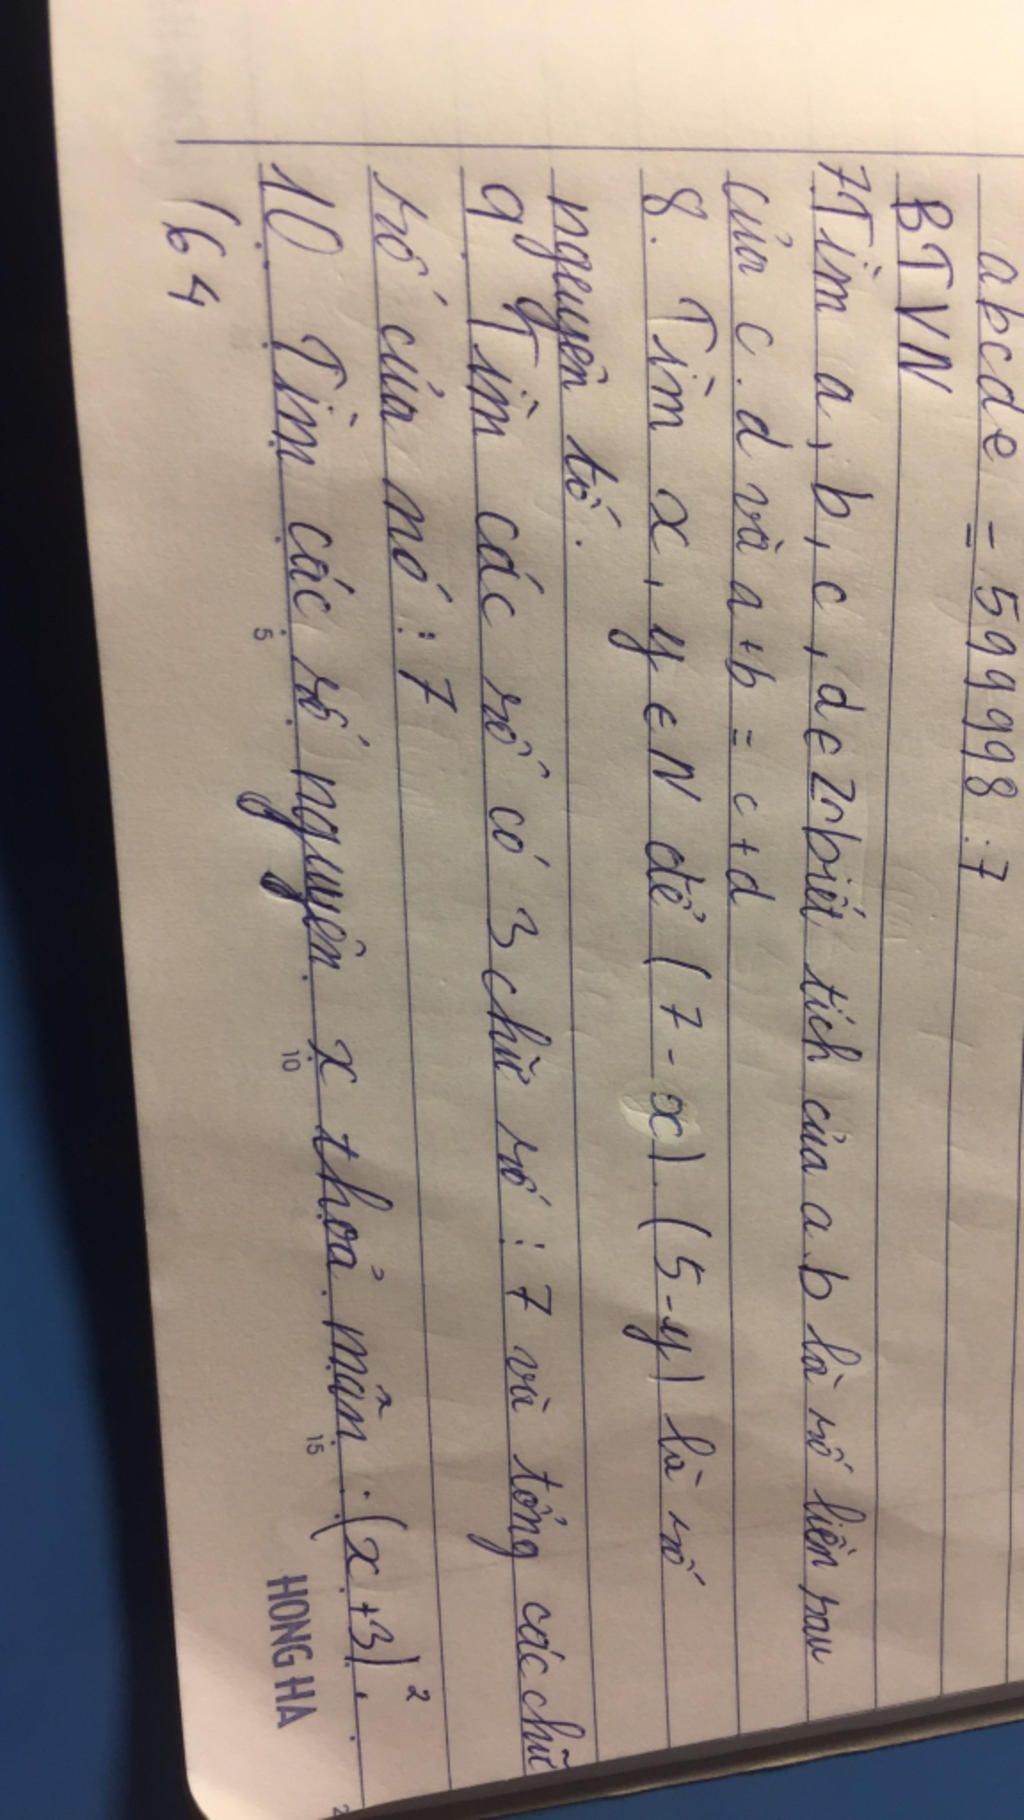 abcde = 599998 : 7
BTVN
7 Tìm a, b, c, d ∈ Z biết tích của a.b là số liền sau
của c.d và a+b = c+d
8. Tìm x, y ∈ N để (7-x).(5-y) là số
nguyên tố.
9 Tìm các số có 3 chữ số : 7 và tổng các chữ
số của nó : 7
10. Tìm các số nguyên x thoả mãn : (x+3)²
164
5
10
15
HONG HA